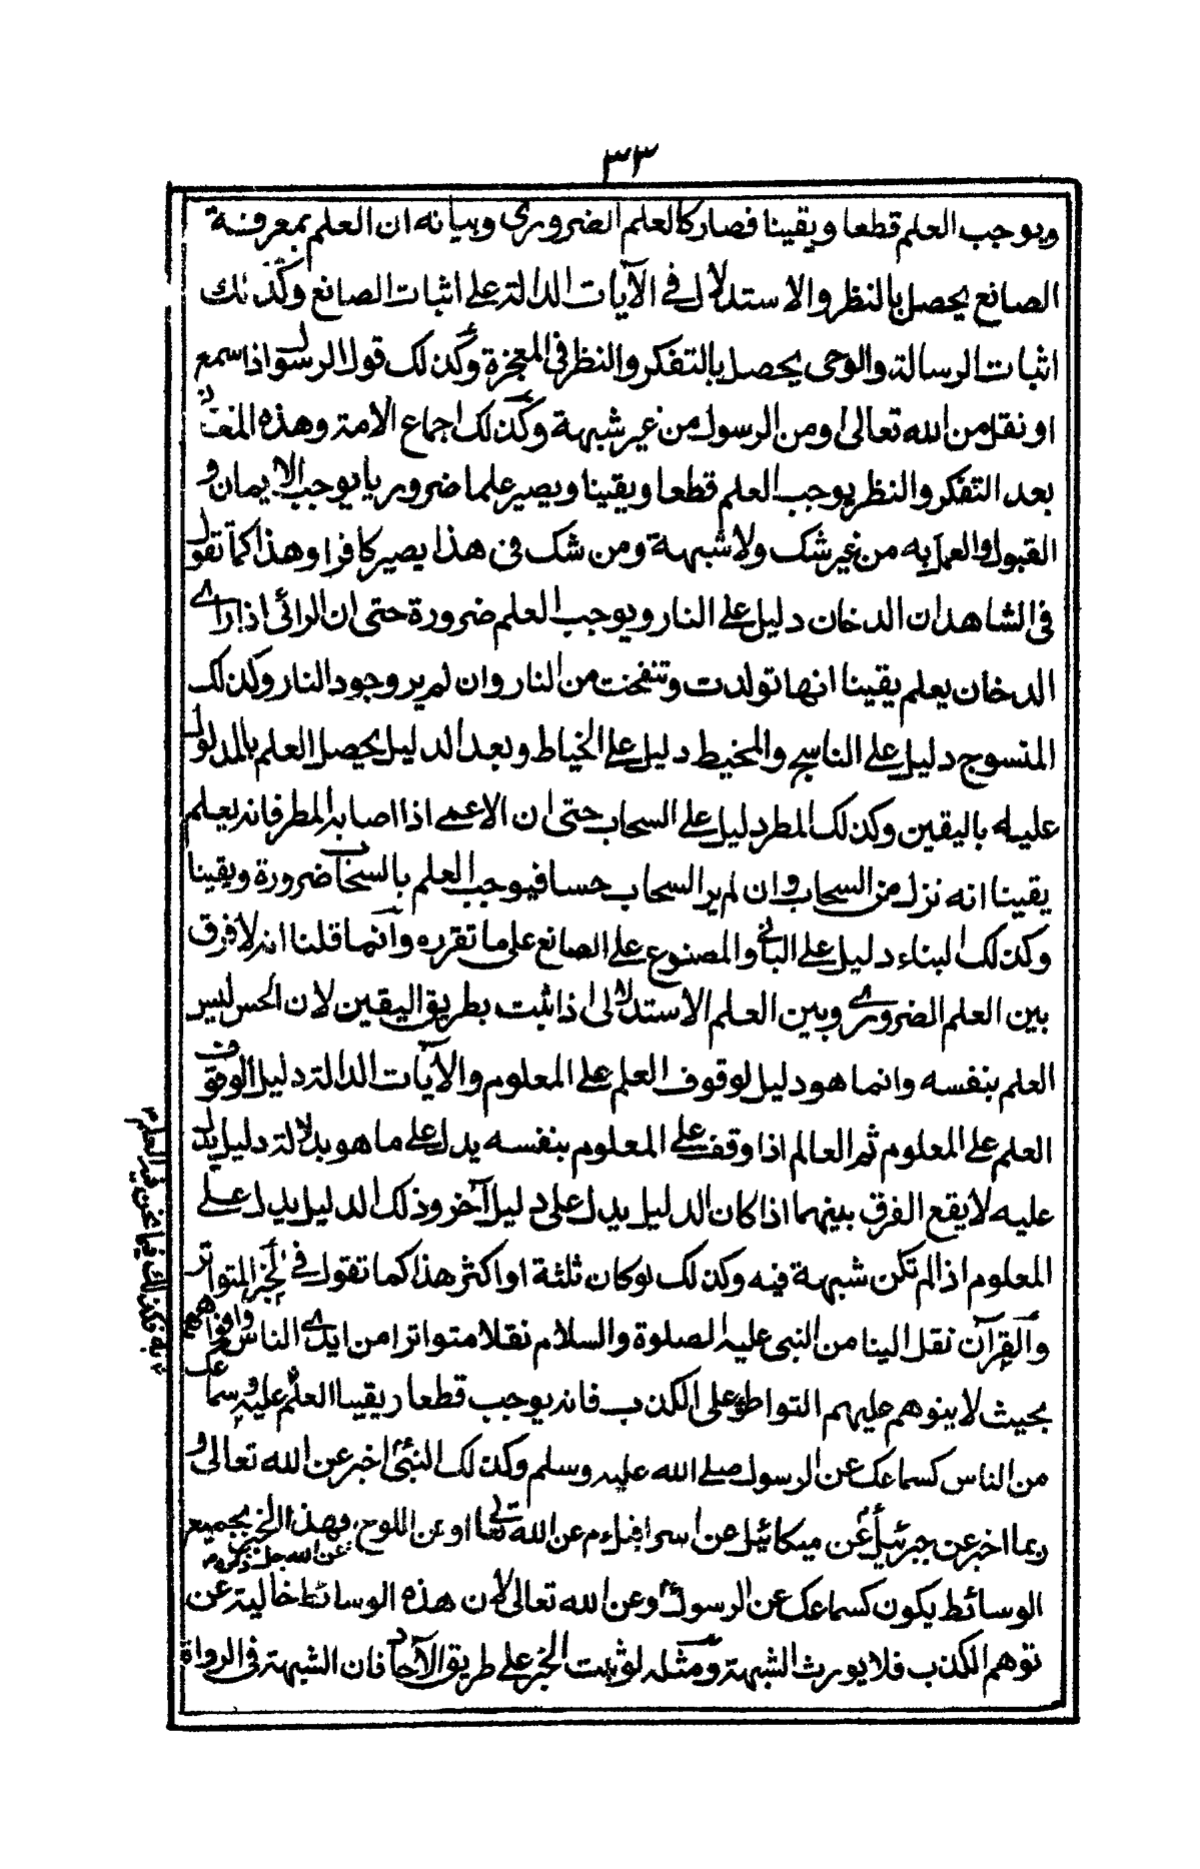 ٣٣
ويوجب العلم قطعا ويقينا فصار كالعلم الضروری وبيانه ان العلم بمعرفة
الصانع يحصل بالنظر والاستدلال فی الآيات الدالة علی اثبات الصانع وكذلك
اثبات الرسالة والوحی يحصل بالتفكر والنظر فی المعجزة وكذلك قول الرسول اذا سمع
او نقل من الله تعالی او من الرسول من غير شبهة وكذلك اجماع الامة وهذه
بعد التفكر والنظر يوجب العلم قطعا ويقينا ويصير علما ضروريا يوجب الايمان و
القبول والعمل به من غير شك ولا شبهة ومن شك فی هذا يصير كافرا وهذا كما تقول
فی الشاهد ان الدخان دليل علی النار ويوجب العلم ضرورة حتی ان الرائی اذا رای
الدخان يعلم يقينا انها تولدت وتنفخت من النار وان لم ير وجود النار وكذلك
المنسوج دليل علی الناسج والمخيط دليل علی الخياط وبعد الدليل يحصل العلم بالمدلول
عليه باليقين وكذلك المطر دليل علی السحاب حتی ان الاعمی اذا اصابه المطر فانه يعلم
يقينا انه نزل من السحاب وان لم ير السحاب حسا فيوجب العلم بالسحاب ضرورة ويقينا
وكذلك البناء دليل علی البانی والمصنوع علی الصانع علی ما تقرره وانما قلنا انه لا فرق
بين العلم الضروری وبين العلم الاستدلالی اذا ثبت بطريق اليقين لان الحس ليس
العلم بنفسه وانما هو دليل لوقوف العلم علی المعلوم والآيات الدالة دليل الوقوف
العلم علی المعلوم ثم العالم اذا وقف علی المعلوم بنفسه يدل علی ما هو بدلالة دليل يدل
عليه لا يقع الفرق بينهما اذا كان الدليل يدل علی دليل آخر وذلك الدليل يدل علی
المعلوم اذا لم تكن شبهة فيه وكذلك لو كان ثلثة او اكثر هذا كما تقول فی الخبر المتواتر
والقرآن نقل الينا من النبی عليه الصلوة والسلام نقلا متواترا من ايدی الناس وافواههم
بحيث لا يتوهم عليهم التواطؤ علی الكذب فانه يوجب قطعا ويقينا العلم عليه وسماعك
من الناس كسماعك عن الرسول صلی الله عليه وسلم وكذلك النبی اخبر عن الله تعالی و
ربما اخبر عن جبرئيل عن ميكائيل عن اسرافيل عن الله تعالی او عن اللوح فهذا الخبر بجميع
عن الله جل ذكره
الوسائط يكون كسماعك عن الرسول وعن الله تعالی لان هذه الوسائط خالية عن
توهم الكذب فلا يورث الشبهة ومثله لو ثبت الخبر علی طريق الآحاد فان الشبهة فی الرواة
به فكذلك فيما نحن فيه العلم